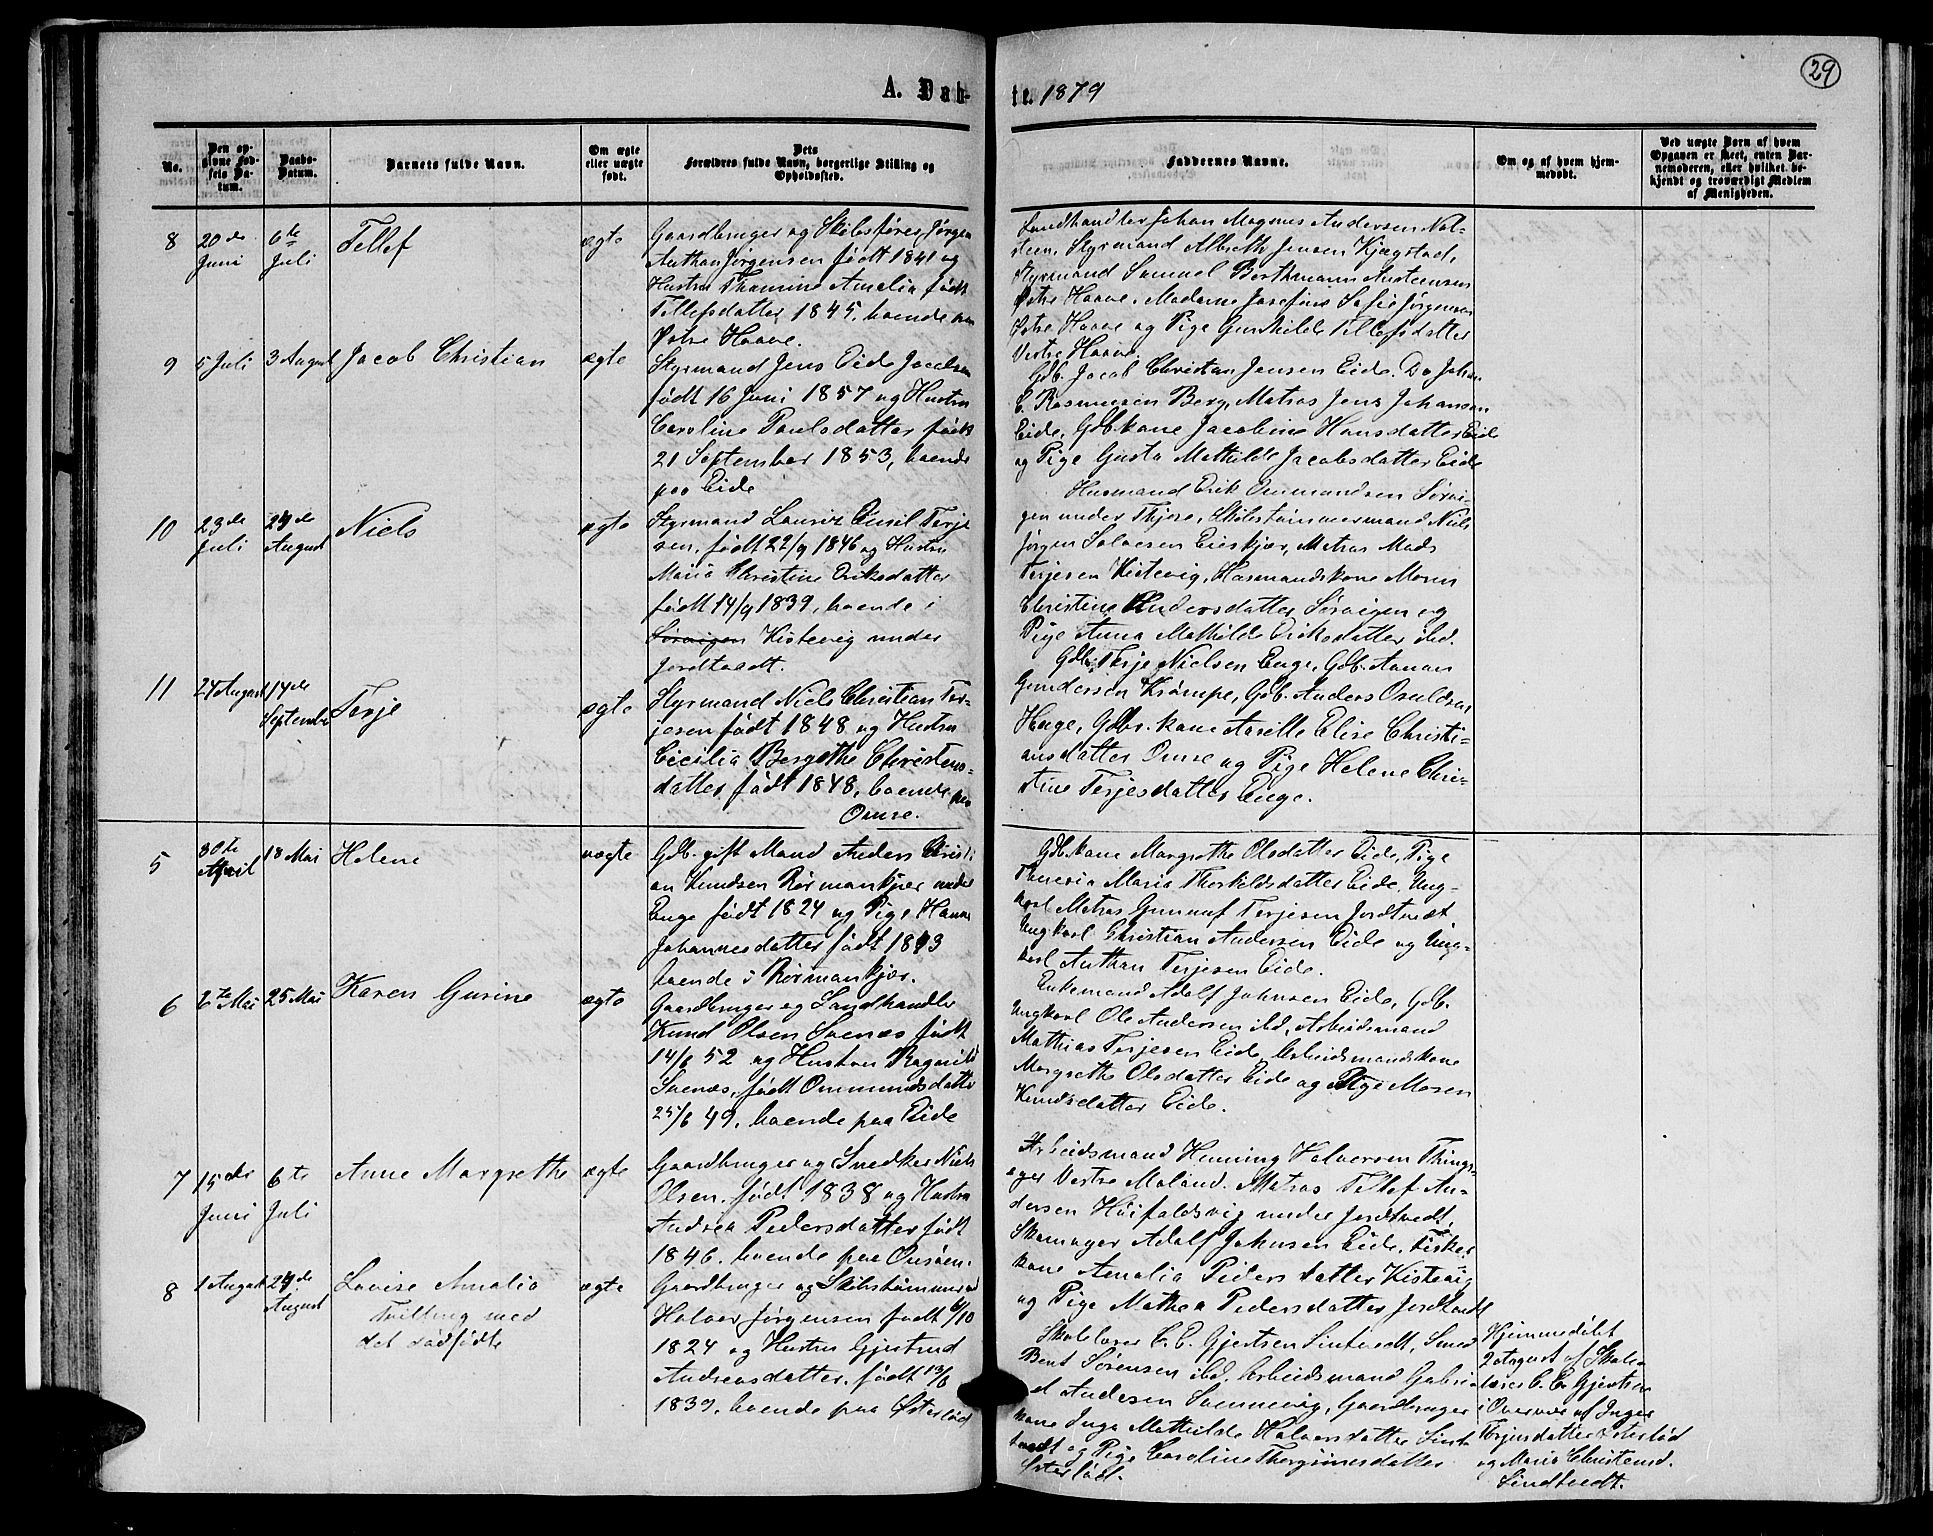 A. Daab-
te. 1879
29
No.
Den op-
givne Fød-
sels Da-
tum.
Daabs-
Datum.
Barnets fulde Navn.
Om ægte
eller uægte
født.
Dets
Forældres fulde Navn, borgerlige Stilling og
Opholdssted.
Faddernes Navne.
Om og af hvem hjem-
medøbt.
Ved uægte Børn af hvem
Opgaven er skeet, enten Bar-
nemoderen, eller hvilket be-
kjendt og troværdigt Medlem
af Menigheden.
8
20de
Juni
6te
Juli
Tellef
ægte
Gaardbruger og Skibsfører Jørgen
Anthon Jørgensen født 1841 og
Hustru Thomine Amalia født
Tellefsdatter 1845, boende paa
Østre Haave.
Landhandler Johan Magnus Andersen Nal-
steen, Styrmand Albreth Jensen Kjægstad,
Styrmand Samuel Berthmann Austeensen
Østre Haave, Madame Josefine Sofie Jørgensen
Østre Haave og Pige Gunhilde Tellefsdatter
Vestre Haave.
9
5 Juli
3 August
Jacob Christian
ægte
Styrmand Jens Eide Jacobsen
født 16 Juni 1857 og Hustru
Caroline Paulsdatter født
21 September 1853, boende
paa Eide
Gdb. Jacob Christian Jensen Eide. Do Johan
C. Rasmussen Berg, Matros Jens Johansen
Eide, Gdb.kone Jacobine Hansdatter Eide
og Pige Gusta Mathilde Jacobsdatter Eide
10
23de
Juli
24de
August
Niels
ægte
Styrmand Lauriz Emil Terje
sen, født 22/9 1846 og Hustru
Maria Christine Eriksdatter
født 14/9 1839, boende i
Sørvigen Kistevig under
Jordtvedt.
Husmand Erik Ommundsen Sørvi-
gen under Thjore, Skibstømmermand Niels
Jørgen Salvesen Eieskjær, Matros Mads
Terjesen Kistevig, Husmandskone Maren
Christine Andersdatter Sørvigen og
Pige Anna Mathilde Eriksdatter ibd.
11
24 August
14de
September
Terje
ægte
Styrmand Niels Christian Ter-
jesen født 1848 og Hustru
Cecilia Bergithe Christens-
datter, født 1848, boende paa
Omre.
Gdb. Terje Nielsen Enge, Gdb. Aanon
Gundersen Krømpe, Gdb. Anders Osuldsen
Hauge, Gdbr. kone Aaselle Elise Christi-
ansdatter Omre og Pige Helene Chri-
stine Terjesdatter Enge.
5
30te
April
18 Mai
Helene
uægte
Gdb. gift Mand Anders Christi
an Knudsen Rørmankjær under
Enge født 1824 og Pige Hanne
Johannesdatter født 1843
boende i Rørmankjær.
Gdb.kone Margrethe Olsdatter Eide, Pige
Theresia Maria Thorkildsdatter Eide, Ung-
karl Matros Gunnuf Terjesen Jordtvedt
Ungkarl Christian Andersen Eide og Ung-
karl Anthon Terjesen Eide.
6
2te Mai
25 Mai
Karen Gurine
ægte
Gaardbruger og Landhandler
Knud Olsen Svenæs født
14/1 52 og Hustru Ragnild
Svenæs, født Ommundsdatter
25/6 49, boende paa Eide
Enkemand Adolf Johnsen Eide, Gdb.
Ungkarl Ole Andersen ibd, Arbeidsmand
Mathias Terjesen Eide, Arbeidsmandskone
Margrethe Olsdatter Eide og Pige Maren
Knudsdatter Eide.
7
15de
Juni
6te
Juli
Anne Margrethe
ægte
Gaardbruger og Snedker Niels
Olsen, født 1838 og Hustru
Andrea Pedersdatter født
1846, boende paa Omsøen.
Arbeidsmand Henning Halversen Things-
ager Vestre Moland. Matros Tellef An-
dersen Høifaldsvig under Jordtvedt,
Skomager Adolf Johnsen Eide, Fisker
kone Amalia Pedersdatter Kistevig
og Pige Mathea Pedersdatter Jordtvedt
8
1 August
24de
August
Lovise Amalia
Tvilling med
det dødfødte
ægte
Gaardbruger og Skibstømmermand
Halvor Jørgensen født 6/10
1824 og Hustru Gjertrud
Andreasdatter, født 13/6
1839, boende paa Østerlød
Skolelærer C. C. Gjertsen Lindtvedt, Smed
Bent Sørensen ibd, Arbeidsmand Gabri-
el Andersen Sømmevig, Gaardbruger
kone Inga Mathilde Halvorsdatter Lindt
tvedt og Pige Caroline Thorgrimsdatter
Østerlød.
Hjemmedøbt
2 August af Skole-
lærer C. C. Gjertsen
i Overvær af Inger
Terjesdatter Østerlød
og Maria Christensd.
Lindtvedt.